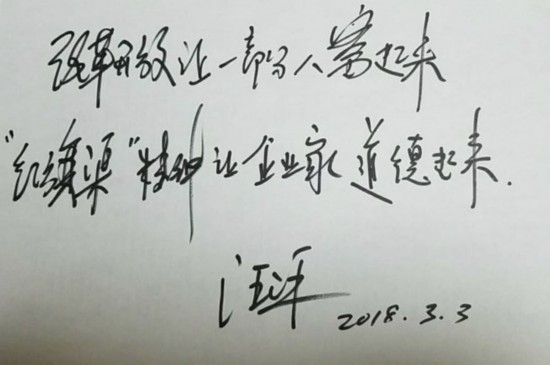 改革开放让一部分人富起来
"红旗渠"精神让企业家道德起来.
2018.3.3